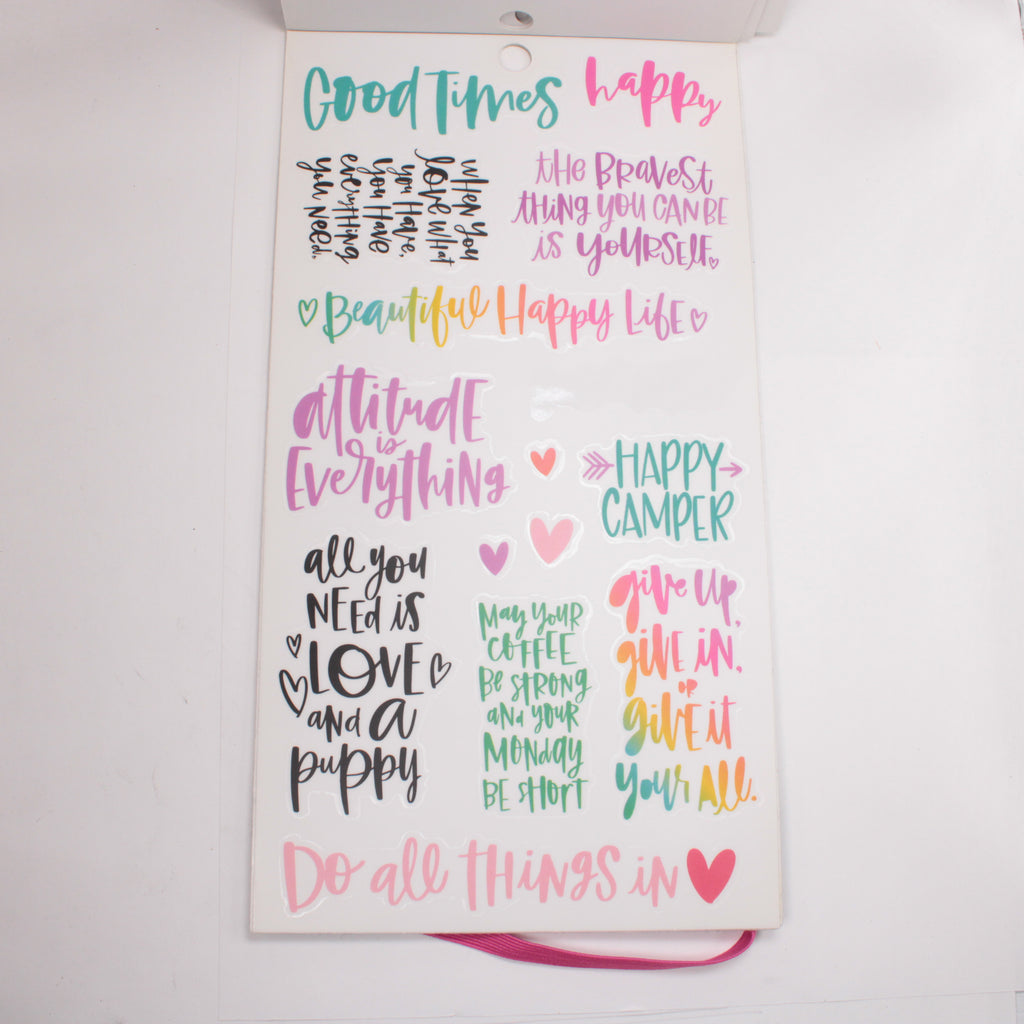 Good Times
happy
when you
love what
you have,
you have
everything
you need.
the Bravest
thing you can be
is yourself.
Beautiful Happy Life
attitude
is
Everything
HAPPY
CAMPER
all you
NEEd is
LOVE
and a
puppy
May your
COFFEE
BE strong
and your
Monday
BE short
give up,
give in,
or
give it
your All.
Do all things in